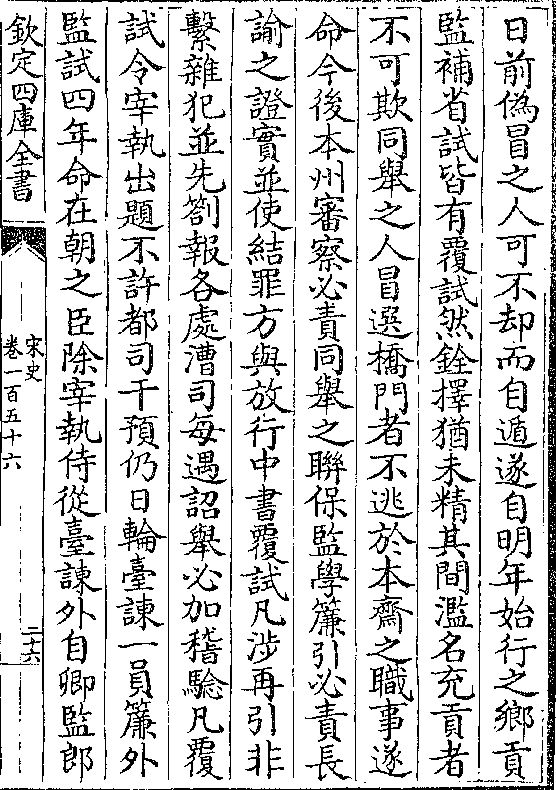 日前偽冒之人可不却而自遁遂自明年始行之鄉貢
監補省試皆有覆試然銓擇猶未精其間濫名充貢者
不可欺同舉之人冒選橋門者不逃於本齋之職事遂
命今後本州審察必責同舉之聯保監學簾引必責長
諭之證實並使結罪方與放行中書覆試凡涉再引非
繫雜犯並先劄報各處漕司每遇詔舉必加稽驗凡覆
試令宰執出題不許都司干預仍日輪臺諫一員簾外
監試四年命在朝之臣除宰執侍從臺諫外自卿監郎
欽定四庫全書
宋史
卷一百五十六
二十六